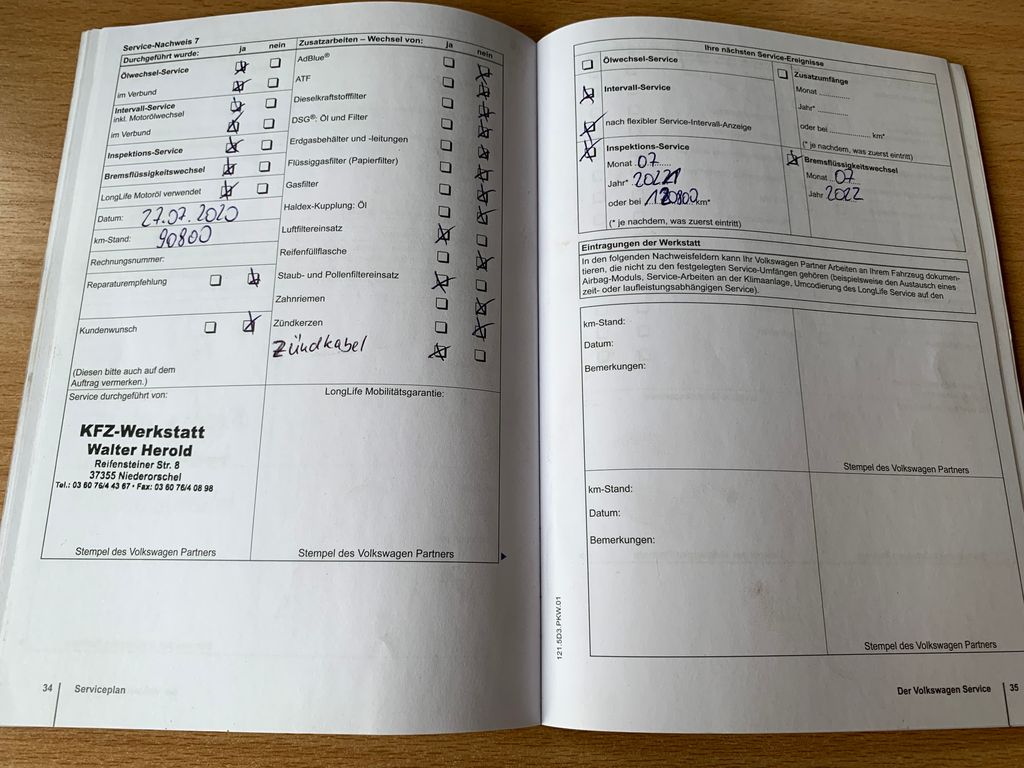 Service-Nachweis 7
Durchgeführt wurde: ja nein
Ölwechsel-Service
im Verbund
Intervall-Service
inkl. Motorölwechsel
im Verbund
Inspektions-Service
Bremsflüssigkeitswechsel
LongLife Motoröl verwendet
Datum: 27.07.2020
km-Stand: 90800
Rechnungsnummer:
Reparaturempfehlung
Kundenwunsch
(Diesen bitte auch auf dem
Auftrag vermerken.)
Zusatzarbeiten – Wechsel von: ja nein
AdBlue®
ATF
Dieselkraftstofffilter
DSG®: Öl und Filter
Erdgasbehälter und -leitungen
Flüssiggasfilter (Papierfilter)
Gasfilter
Haldex-Kupplung: Öl
Luftfiltereinsatz
Reifenfüllflasche
Staub- und Pollenfiltereinsatz
Zahnriemen
Zündkerzen
Zündkabel
Service durchgeführt von:
KFZ-Werkstatt
Walter Herold
Reifensteiner Str. 8
37355 Niederorschel
Tel.: 03 60 76/4 43 67 • Fax: 03 60 76/4 08 98
Stempel des Volkswagen Partners
LongLife Mobilitätsgarantie:
Stempel des Volkswagen Partners
34 Serviceplan
Ihre nächsten Service-Ereignisse
Ölwechsel-Service
Intervall-Service
nach flexibler Service-Intervall-Anzeige
Inspektions-Service
Monat 07
Jahr*
oder bei 120800 km*
(* je nachdem, was zuerst eintritt)
Zusatzumfänge
Monat ..............
Jahr* ..............
oder bei .................. km*
(* je nachdem, was zuerst eintritt)
Bremsflüssigkeitswechsel
Monat 07
Jahr 2022
Eintragungen der Werkstatt
In den folgenden Nachweisfeldern kann Ihr Volkswagen Partner Arbeiten an Ihrem Fahrzeug dokumen-
tieren, die nicht zu den festgelegten Service-Umfängen gehören (beispielsweise den Austausch eines
Airbag-Moduls, Service-Arbeiten an der Klimaanlage, Umcodierung des LongLife Service auf den
zeit- oder laufleistungsabhängigen Service).
km-Stand:
Datum:
Bemerkungen:
Stempel des Volkswagen Partners
km-Stand:
Datum:
Bemerkungen:
Stempel des Volkswagen Partners
121.5D3.PKW.01
Der Volkswagen Service 35